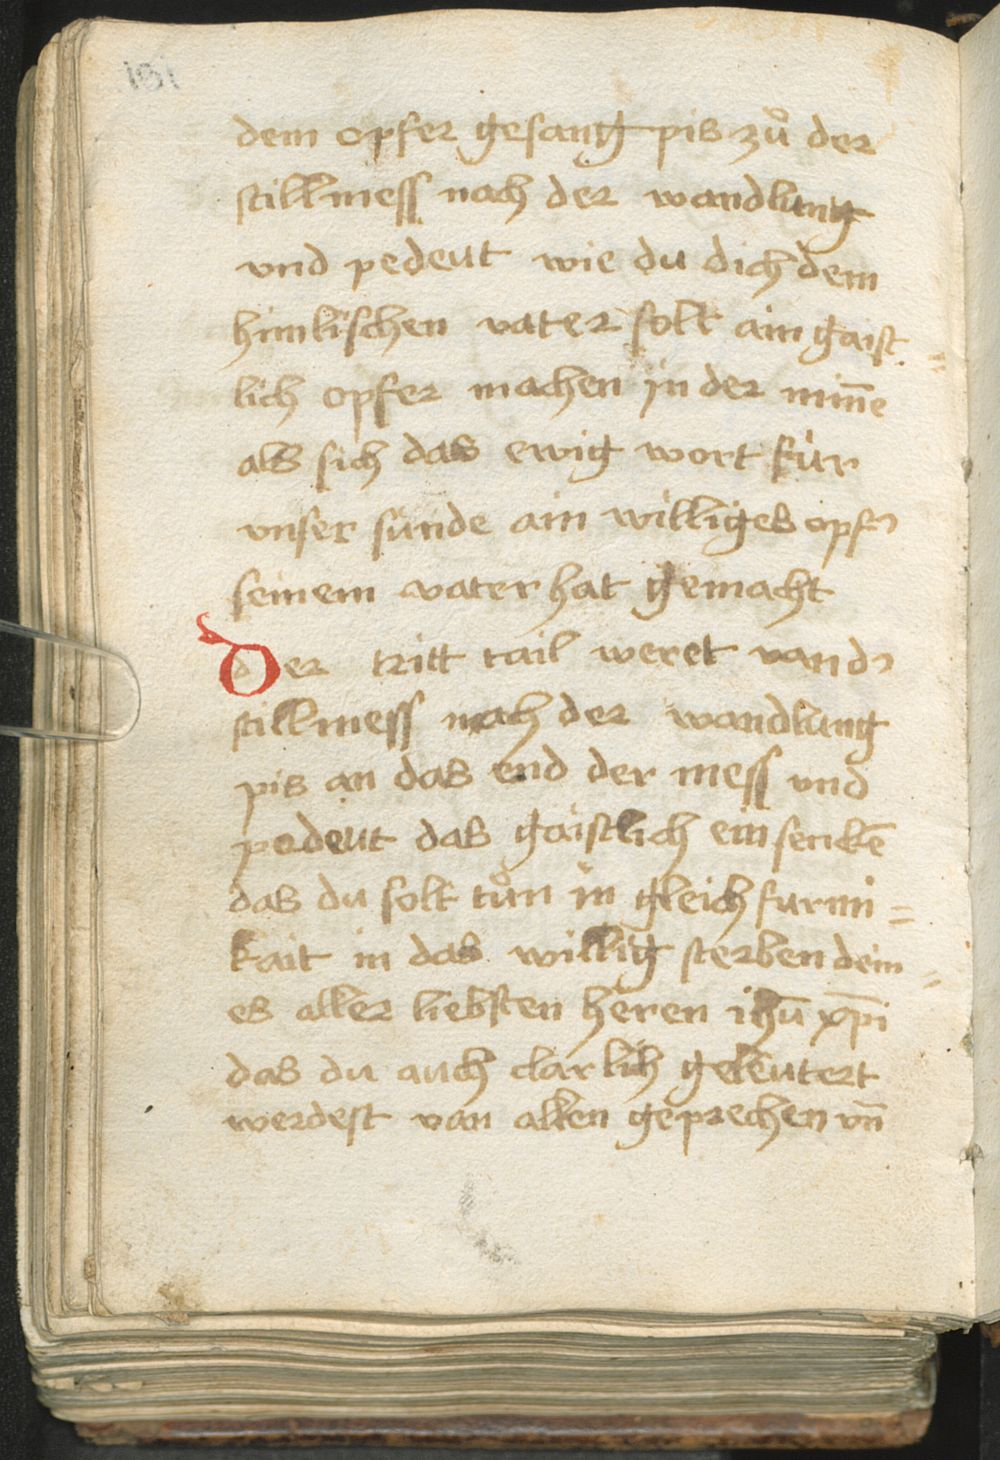 dem opfer gesang pis zů der
stillmess nach der wandlung
vnd pedeut wie du dich dem
himlischen vater solt ain gaist=
lich opfer machen in der min̄e
als sich das ewig wort für
vnser sünde ain williges opf
seinem vater hat gemacht
Der tritt tail weret van d
stillmess nach der wandlung
pis an das end der mess vnd
pedeut das gaistlich ein senckē
das du solt tůn in gleich furmi=
kait in das willig sterben dein=
es aller liebsten heren ihū xp̄i
das du auch clarlich geleutert
werdest van allen geprechen vn̄